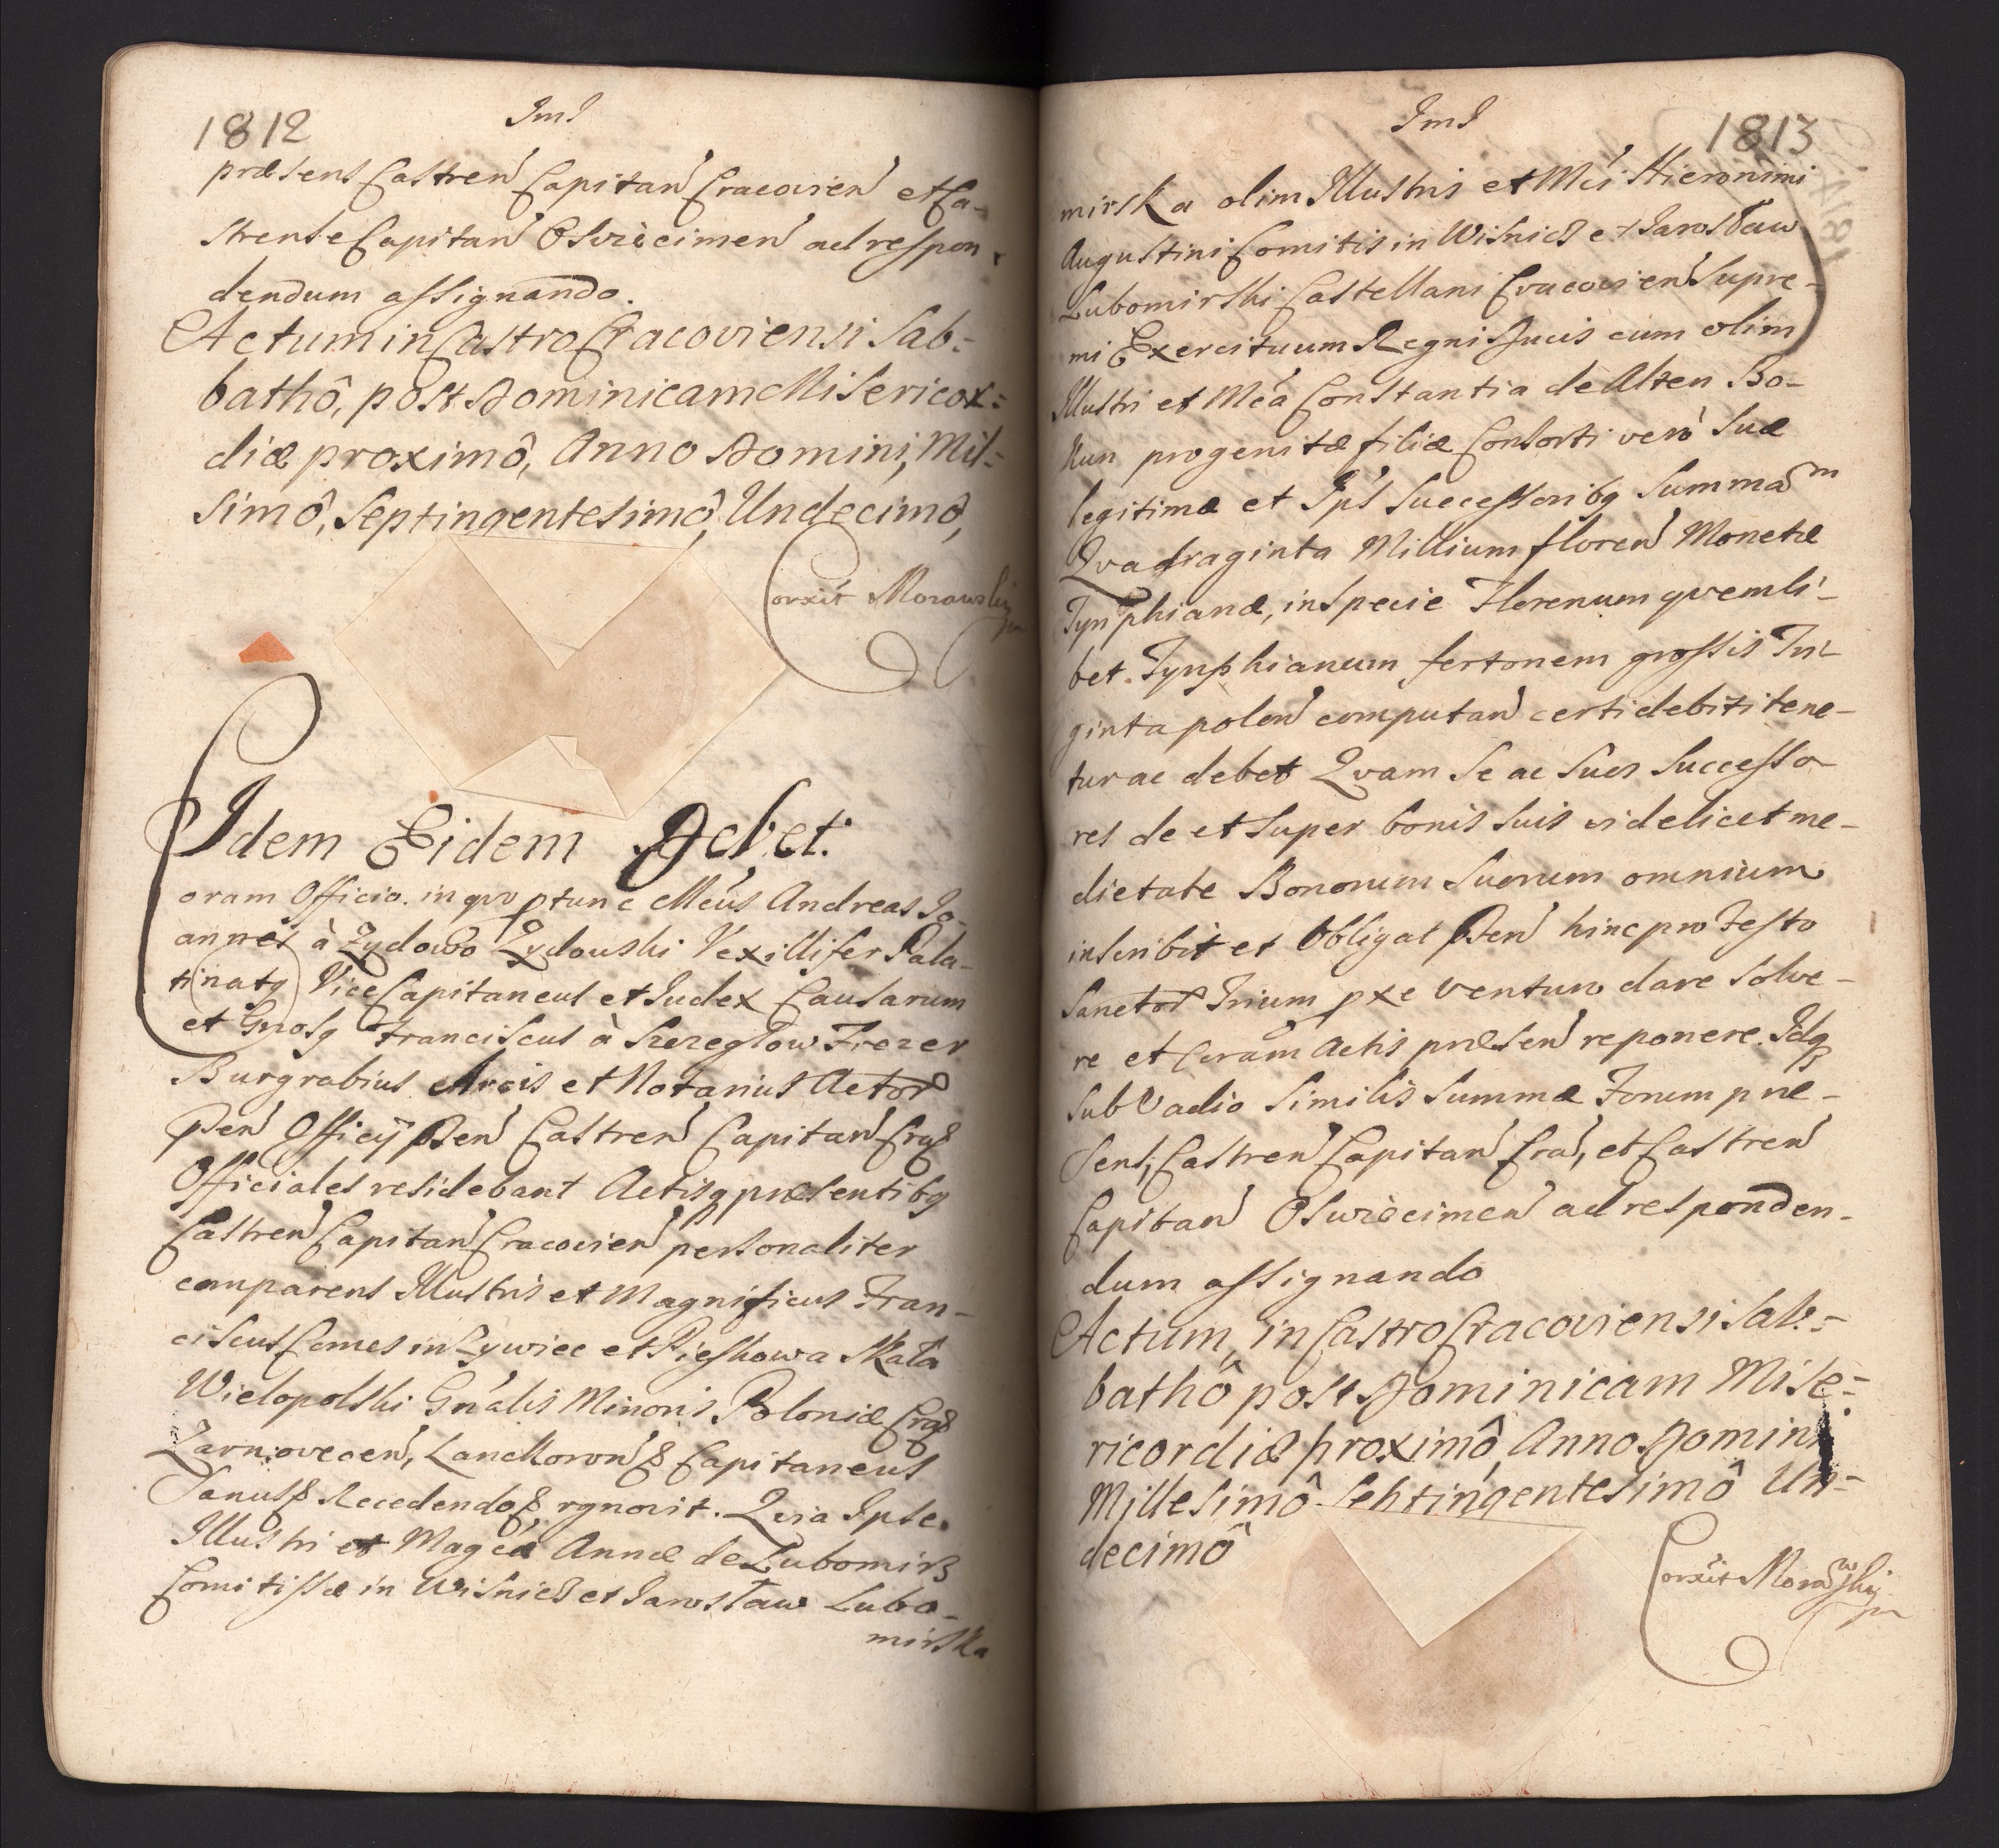 1812
Iml
præsens Castren Capitan Cracovien et Ca-
strense Capitan Osvięcimen ad respon-
dendum assignando.
Actum in Castro Cracoviensi Sab:
bathô, post Dominicam Misericor:
diæ proximô, Anno Domini, Mil:
simô, Septingentesimô, Undecimô,
Corxit Morawski
Idem Eidem Debet.
Coram Officio. in quo ptunc Mcus Andreas Jo-
annes à Zydowo Zydowski Vexillifer Pala-
tinatq Vice Capitaneus et Iudex Causarum
et Gnosq Franciscus à Szczegłow Frezer
Burgrabius Arcis et Notarius Actor
Pen Officij Pen Castren Capitan Crac
Officiales residebant Actisq præsentibq
Castren Capitan Cracovien personaliter
comparens Illustris et Magnificus Fran-
ciscus Comes in Zywiec et Pieskowa Skała
Wielopolski Gnalis Minoris Poloniæ Crac
Zarnovecen, Lanckoron & Capitaneus
Sanus & Recedendo & rgnovit. Qvia Ipse.
Illustri et Magcæ Annæ de Lubomirz
Comitissæ in Wisnicz et Jarosław Lubo-
mirska
Iml
1813
mirska olim Illustris et Mci Hieronimi
Augustini Comitis in Wisnicz et Jarosław
Lubomirski Castellani Cracovien Supre-
mi Exercituum Regni Ducis cum olim
Illustri et Mca Constantia de Alten Bo-
kun progenitæ filiæ Consorti verò Suæ
legitimæ et Ips Successoribq Summam
Qvadraginta Millium floren Monetæ
Tynphianæ, in Specie Florenum qvemli-
bet Tynphianum fertonem grossis Tri-
ginta polon computan certi debiti tene-
tur ac debet Qvam Se ac Suos Successo-
res de et Super bonis Suis videlicet me-
dietate Bonorum Suorum omnium
inscribit et Obligat Pen hinc pro Festo
Sanctor Trium pxe venturo dare Solve-
re et Coram Actis præsen reponere. Idq
Sub Vadio Similis Summæ Forum præ-
sens, Castren Capitan Cra, et Castren
Capitan Oswięcimen ad responden-
dum assignando
Actum, in Castro Cracoviensi Sab:
bathô post Dominicam Mise:
ricordiæ proximô, Anno Domini
Millesimô Septingentesimô Un:
decimô
Corxit Morawski